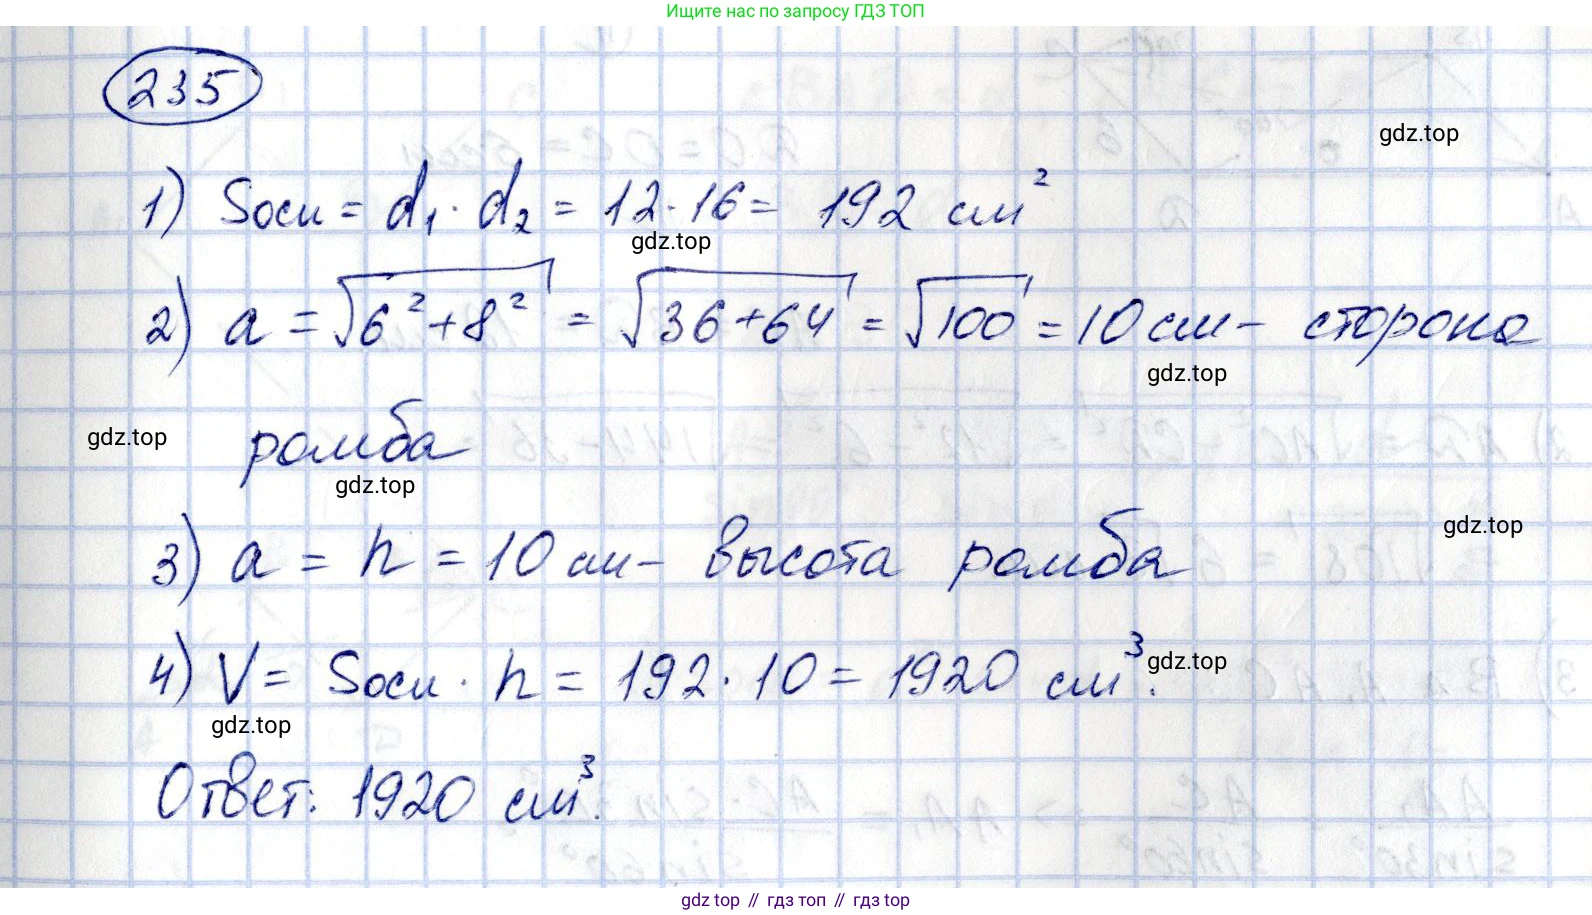 Ищите нас по запросу ГДЗ ТОП
235
gdz.top
1) Sосн = d₁ · d₂ = 12 · 16 = 192 см²
gdz.top
2) a = √6² + 8² = √36 + 64 = √100 = 10 см – сторона
gdz.top
gdz.top
ромба
gdz.top
gdz.top
3) a = h = 10 см – высота ромба
4) V = Sосн · h = 192 · 10 = 1920 см³.
gdz.top
gdz.top
Ответ: 1920 см³.
gdz top // гдз топ // гдз top